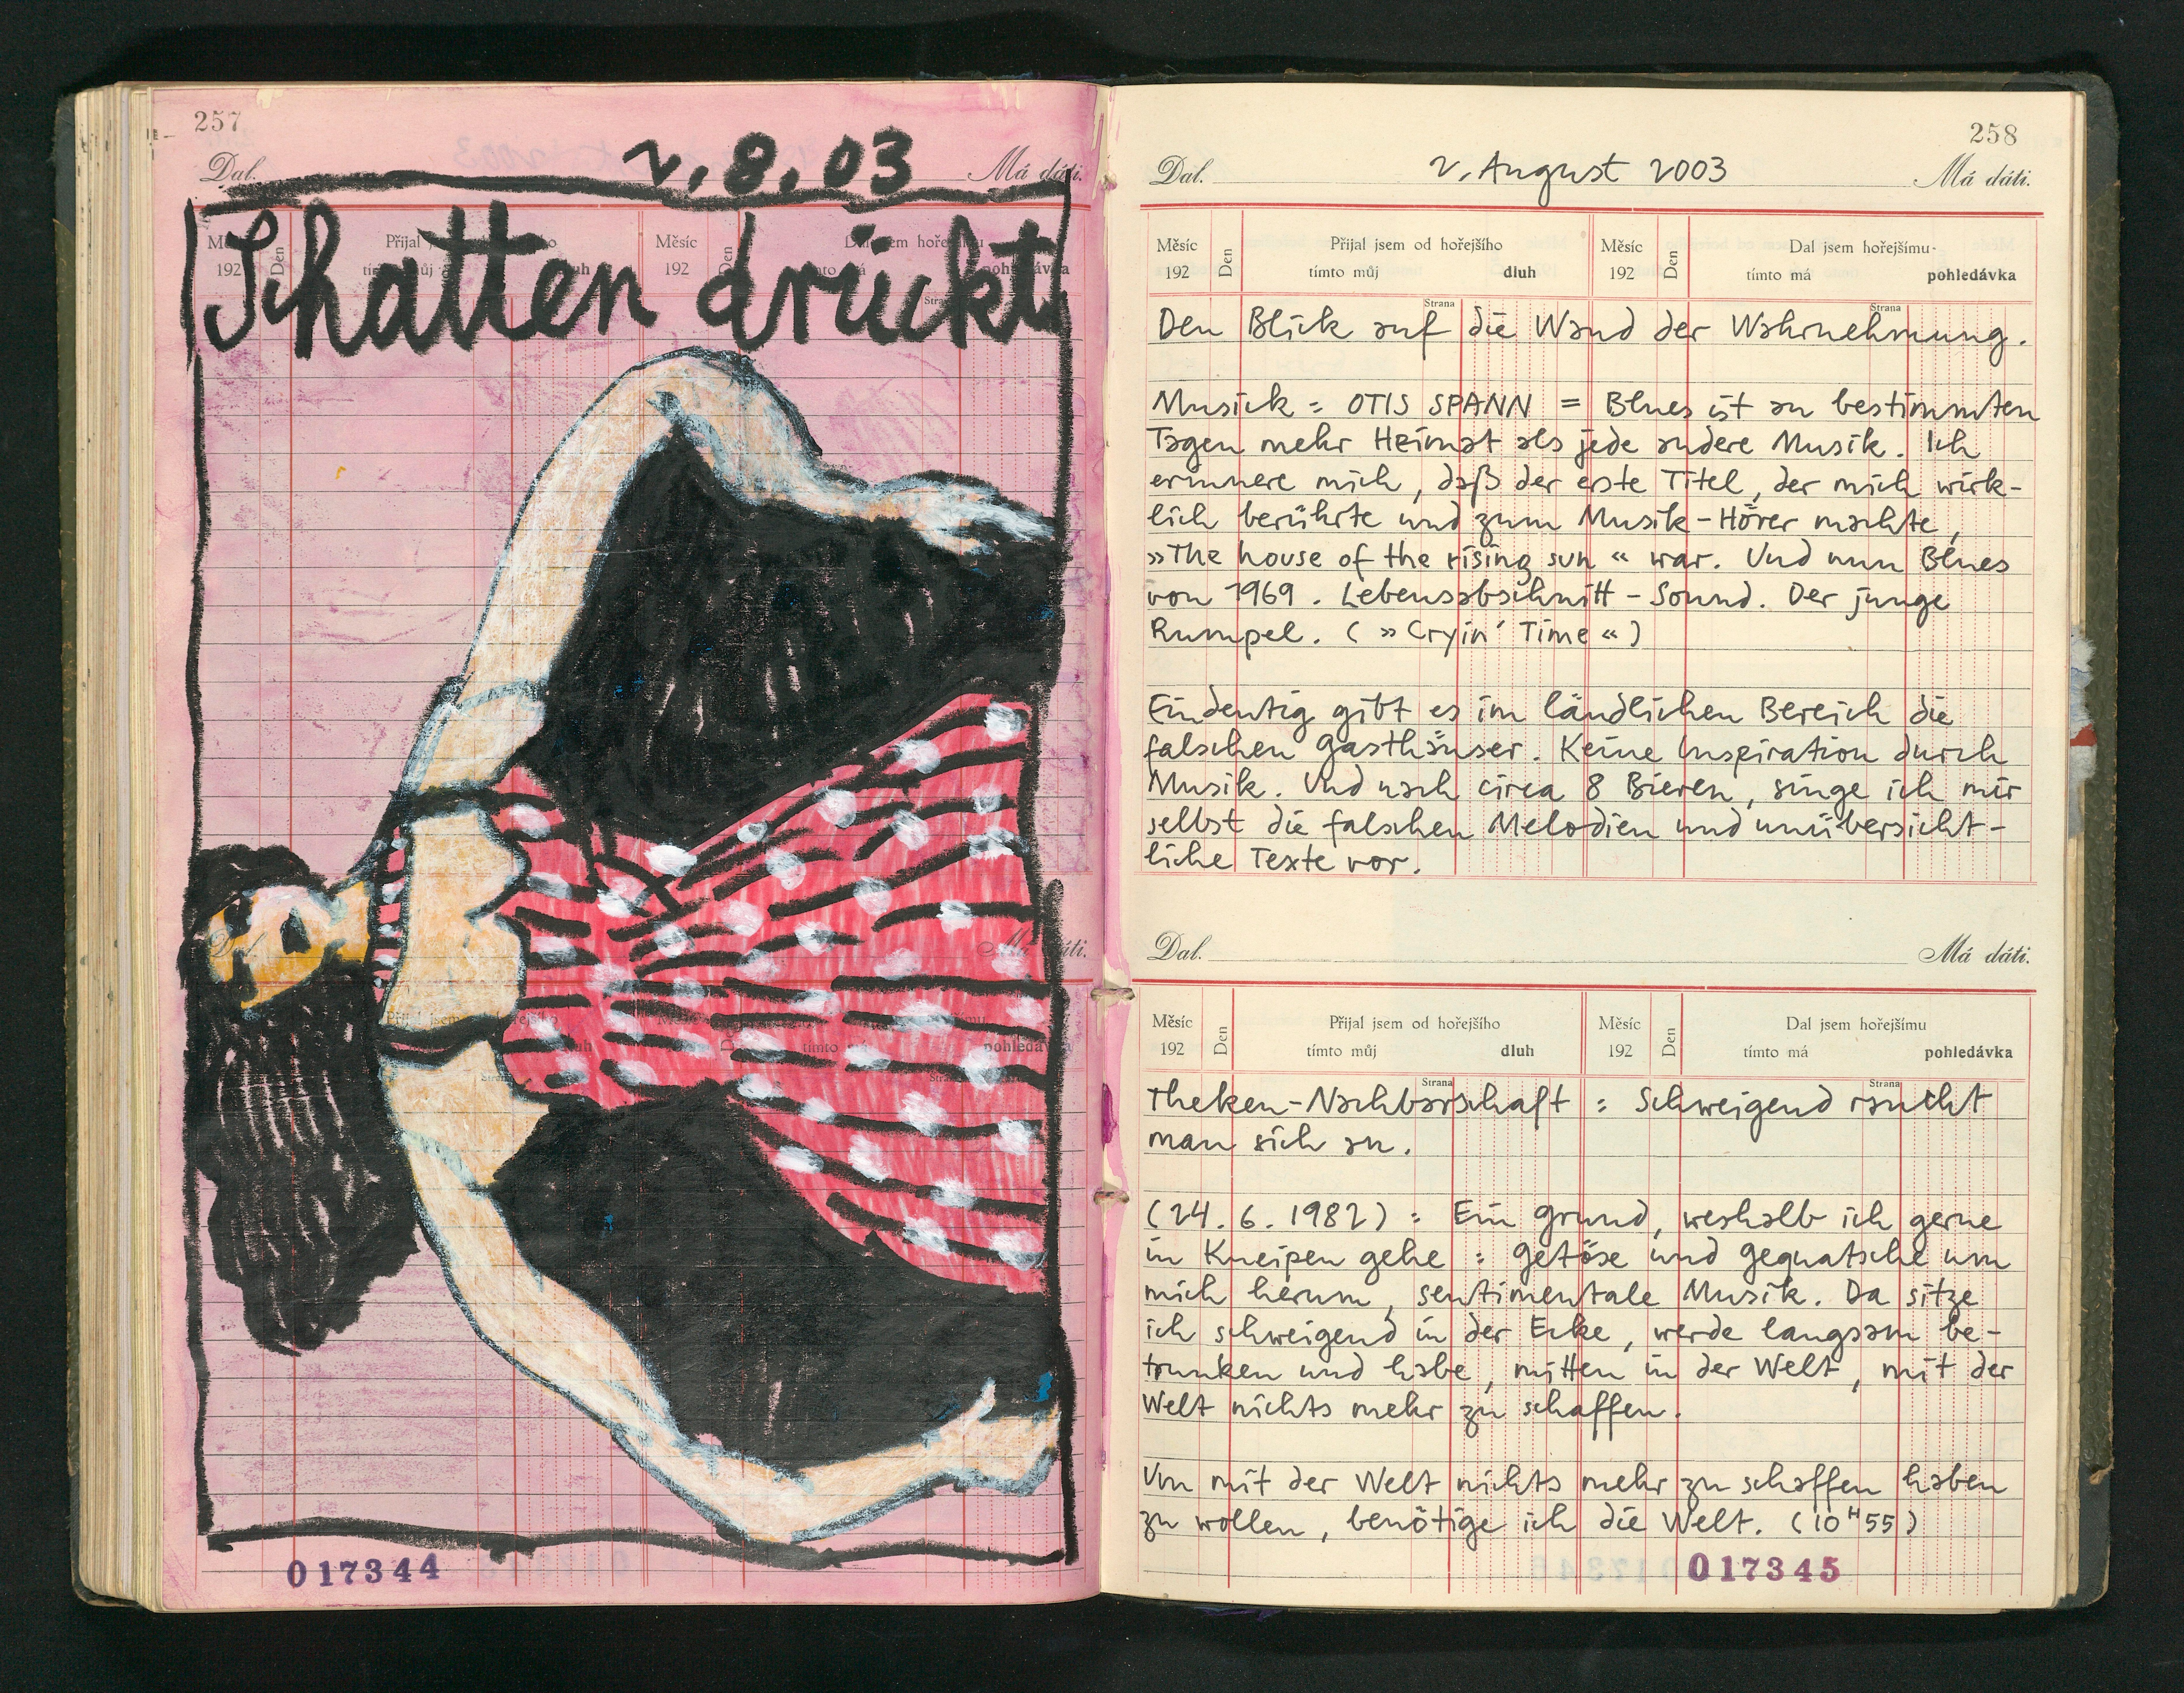 257
2.8.03
Dal. Má dáti.
Schatten drückt
Měsíc Den Přijal Měsíc Den Dal jsem hořejšímu
192 tímto můj dluh 192 tímto má pohledávka
Strana
Dal. Má dáti.
Přijal jsem hořejšího
dluh tímto má pohledávka
Strana Strana
017344
258
Dal. 2. August 2003 Má dáti.
Měsíc Den Přijal jsem od hořejšího Měsíc Den Dal jsem hořejšímu
192 tímto můj dluh 192 tímto má pohledávka
Strana Strana
Den Blick auf die Wand der Wahrnehmung.
Musick = OTIS SPANN = Blues ist an bestimmten
Tagen mehr Heimat als jede andere Musik. Ich
erinnere mich, daß der erste Titel, der mich wirk-
lich berührte und zum Musik-Hörer machte,
»The house of the rising sun« war. Und nun Blues
von 1969. Lebensabschnitt-Sound. Der junge
Rumpel. (»Cryin' Time«)
Eindeutig gibt es im ländlichen Bereich die
falschen Gasthäuser. Keine Inspiration durch
Musik. Und nach circa 8 Bieren, singe ich mir
selbst die falschen Melodien und unübersicht-
liche Texte vor.
Dal. Má dáti.
Měsíc Den Přijal jsem od hořejšího Měsíc Den Dal jsem hořejšímu
192 tímto můj dluh 192 tímto má pohledávka
Strana Strana
Theken-Nachbarschaft : Schweigend raucht
man sich an.
(24.6.1982) : Ein Grund, weshalb ich gerne
in Kneipen gehe : Getöse und Gequatsche um
mich herum, sentimentale Musik. Da sitze
ich schweigend in der Ecke, werde langsam be-
trunken und habe, mitten in der Welt, mit der
Welt nichts mehr zu schaffen.
Um mit der Welt nichts mehr zu schaffen haben
zu wollen, benötige ich die Welt. (10ᴴ55)
017345